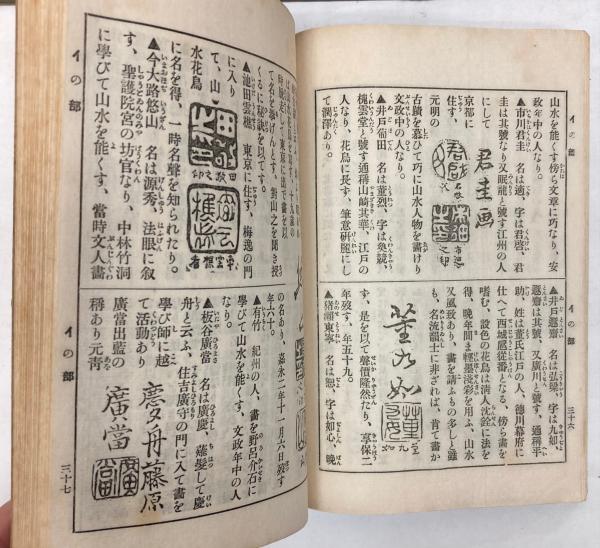 イの部
三十六
山水を能くす傍ら文章に巧なり、安
政年中の人なり。
▲市川君圭 名は適、字は君啓、君
圭は其號なり又眠龍と號す江州の人
にして
京都に
住す、
元明の
君圭画
古蹟を慕ひて巧に山水人物を畫けり
文政中の人なり。
▲井戸 名は董烈、字は
槐雲堂と號す通稱山崎其華、江戸の
人なり、花鳥に長ず、筆意研麗にし
て潤澤あり。
▲井戸甕齋 名は弘梁、字は九如、
甕齋は其號、又廣川と號す、通稱平
助、姓は董氏江戸の人、德川幕府に
仕へて西城徒番となる、傍ら畫を
嗜む、設色の花鳥は淸人沈銓に法を
得、晩年間ま輕墨淺彩を用ふ、山水
又風致あり、畫を請ふもの多しと雖
も、名流韻士に非ざれば、肯て畫か
董九如
ず、是を以て聲價隆然たり、享保二
年歿す、年五十九。
▲猪瀨東寧 名は恕、字は如心、晩
イの部
三十七
て名を擧げんとす、對山之を聞き授
くるに秘訣を以てす。
▲池田雲樵 東京に住す、梅逸の門
に入り
て、山
水花鳥
に名を得、一時名聲を知られたり。
▲今大路悠山 名は源秀、法眼に叙
す、聖護院宮の坊官なり、中林竹洞
に學びて山水を能くす、當時文人畫
の名あり、嘉永二年十一月六日歿す
年六十。
▲有竹 紀州の人、畫を野呂介石に
學びて山水を能くす、文政年中の人
なり。
▲板谷廣當 名は廣慶 薙髮して慶
舟と云ふ、住吉廣守の門に入て畫を
學び師に越
て活動あり
廣當出藍の
稱あり元靑
慶舟藤原
廣當